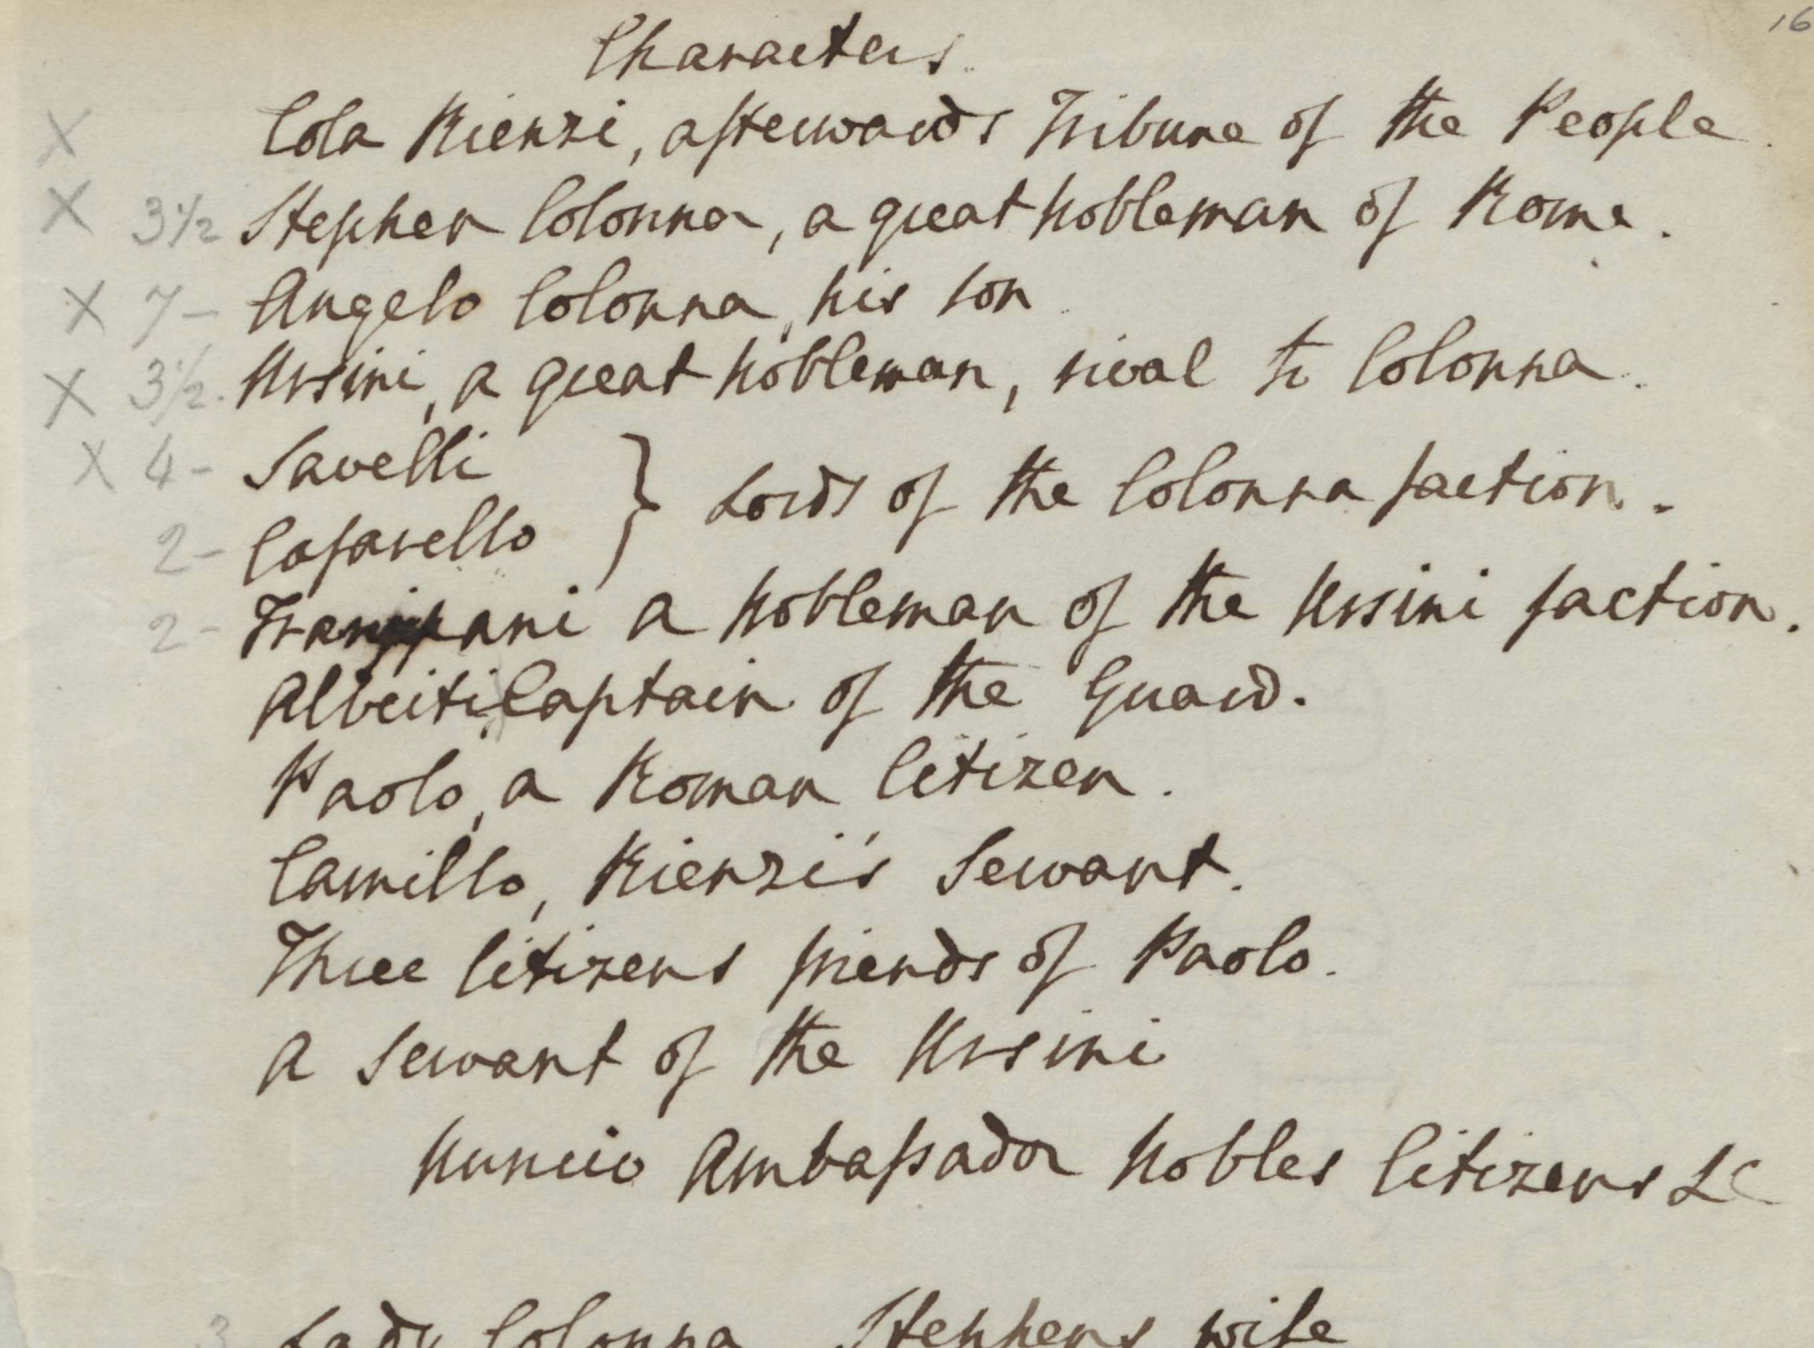 16
Characters.
X Cola Rienzi, afterwards Tribune of the People.
X 3 1/2 Stephen Colonna, a great Nobleman of Rome.
X 7 - Angelo Colonna, his son.
X 3 1/2. Ursini, a great Nobleman, rival to Colonna.
X 4 - Savelli
} Lords of the Colonna faction.
2 - Cafarello
2 - a Nobleman of the Ursini faction.
Alberti, Captain of the Guard.
Paolo, a Roman Citizen.
Camillo, Rienzi's Servant.
Three Citizens friends of Paolo.
A Servant of the Ursini
Nuncio Ambassador Nobles Citizens &c
3 Lady Colonna Stephens wife